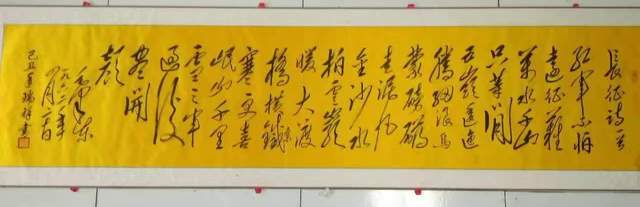 長征詩一首
红軍不怕
遠征難
萬水千山
只等闲
五嶺逶迤
腾细浪烏
蒙磅礴
走泥丸
金沙水
拍雲崖
暖大渡
橋横鐵索
寒更喜
岷山千里
雪三軍
過後
盡開
颜
毛澤东
一九六二年
四月二十日
己丑夏瑞祥書